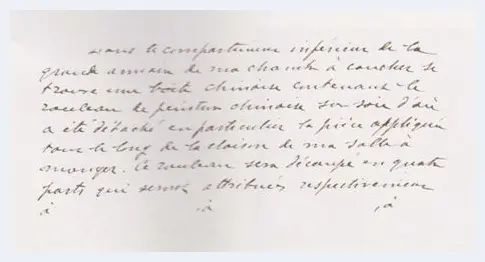 Dans le compartiment inférieur de la
grande armoire de ma chambre à coucher se
trouve une boîte chinoise contenant le
rouleau de peinture chinoise sur soie d'où
a été détaché en particulier la pièce appliquée
tout le long de la cloison de ma salle à
manger. Ce rouleau sera découpé en quatre
parts qui seront attribuées respectivement
à à , à